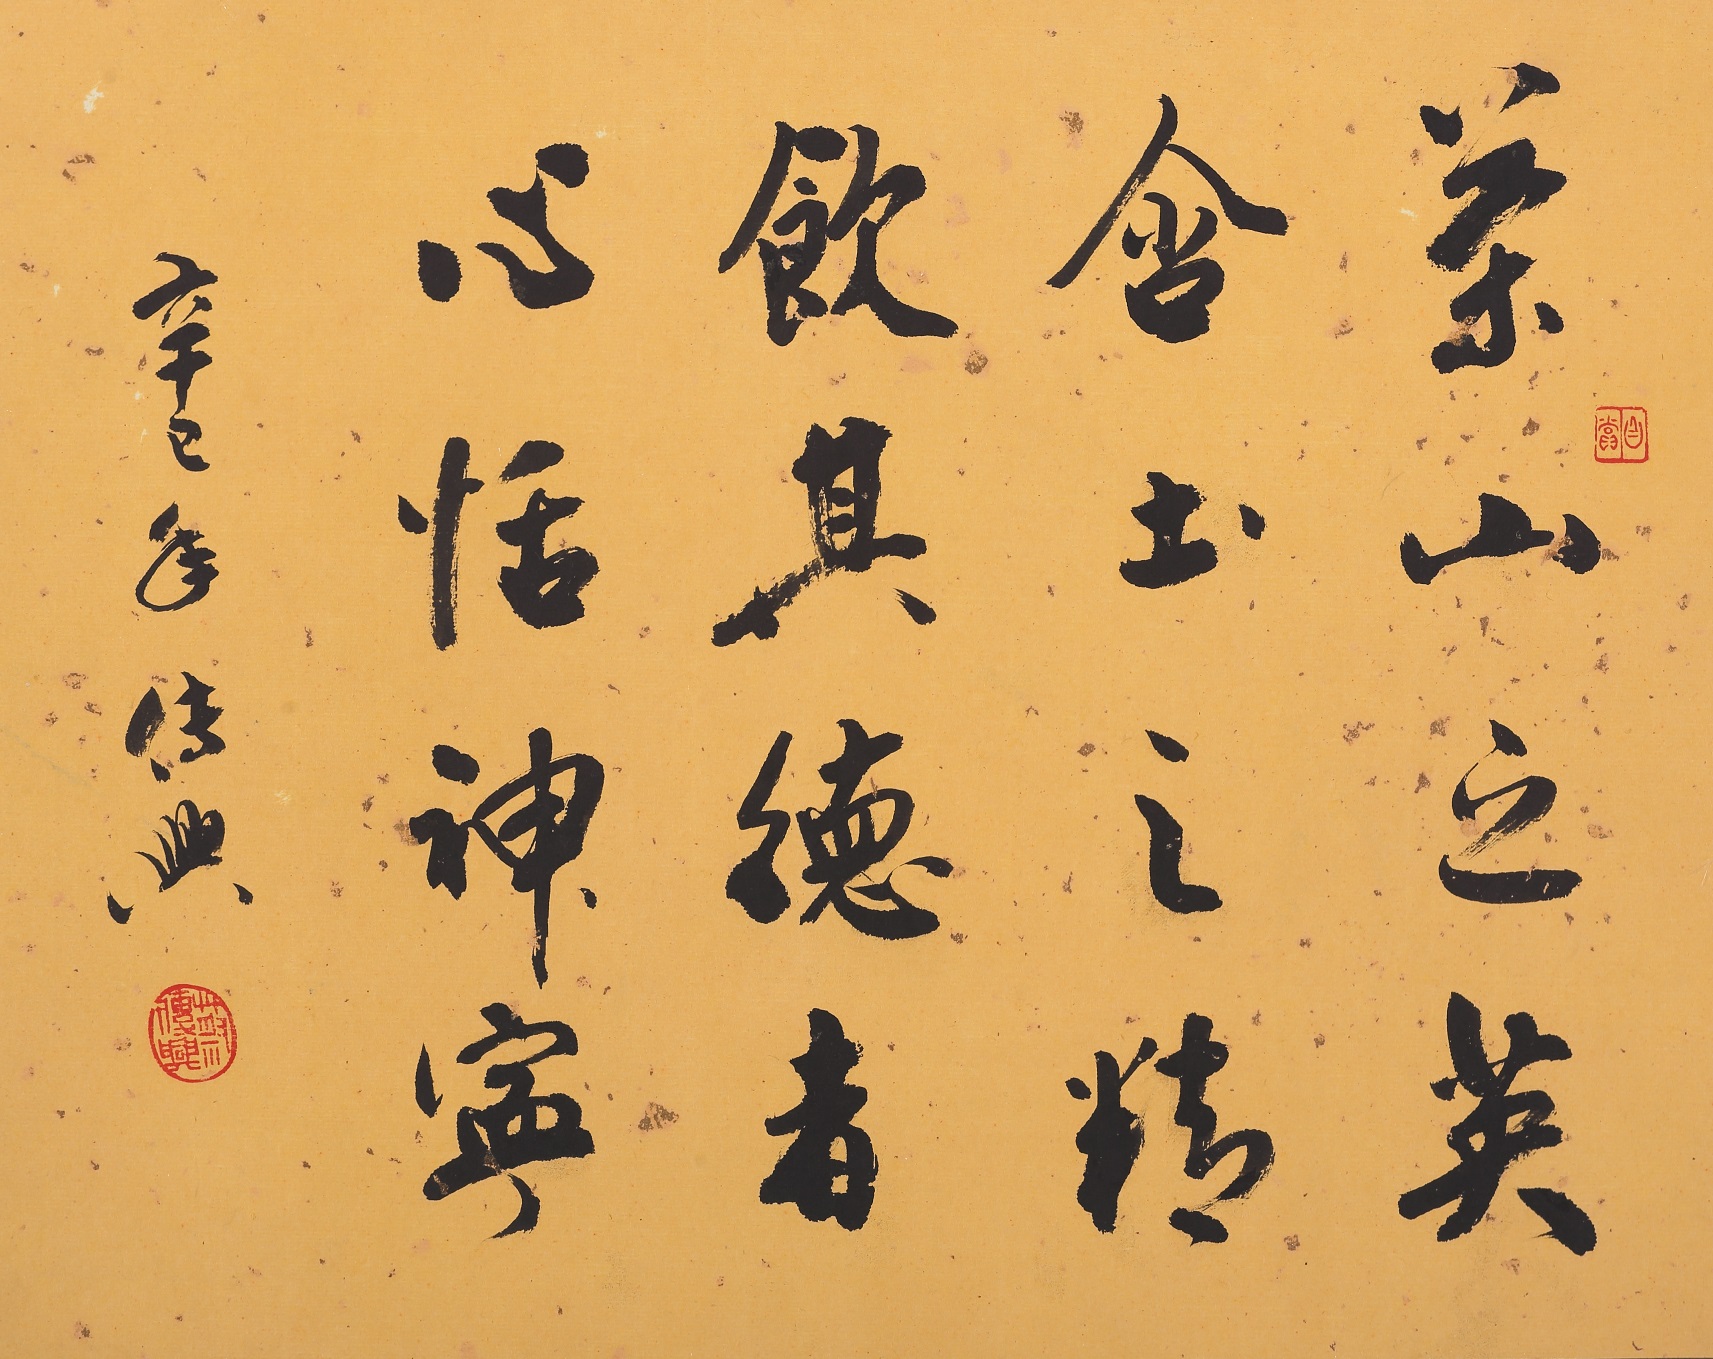 葉山之英
含土之精
飲其德者
心恬神寧
辛巳年 傳興